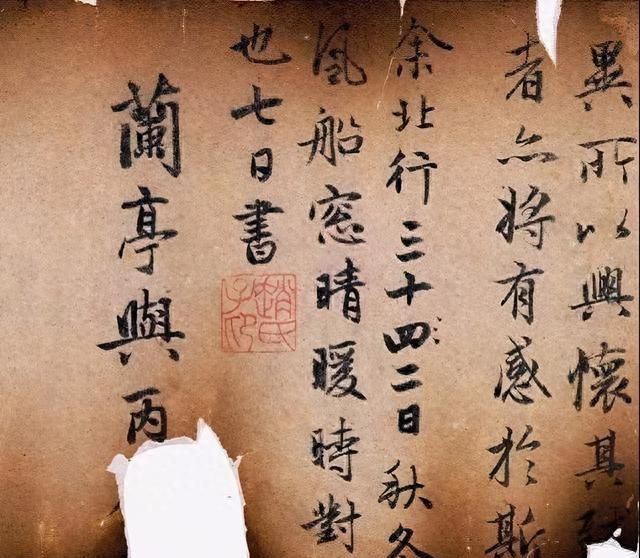 異所以興懷其
者亦将有感於斯
余北行三十四二日秋冬
風船窓晴暖時對
也七日書
趙氏子昂
蘭亭與丙